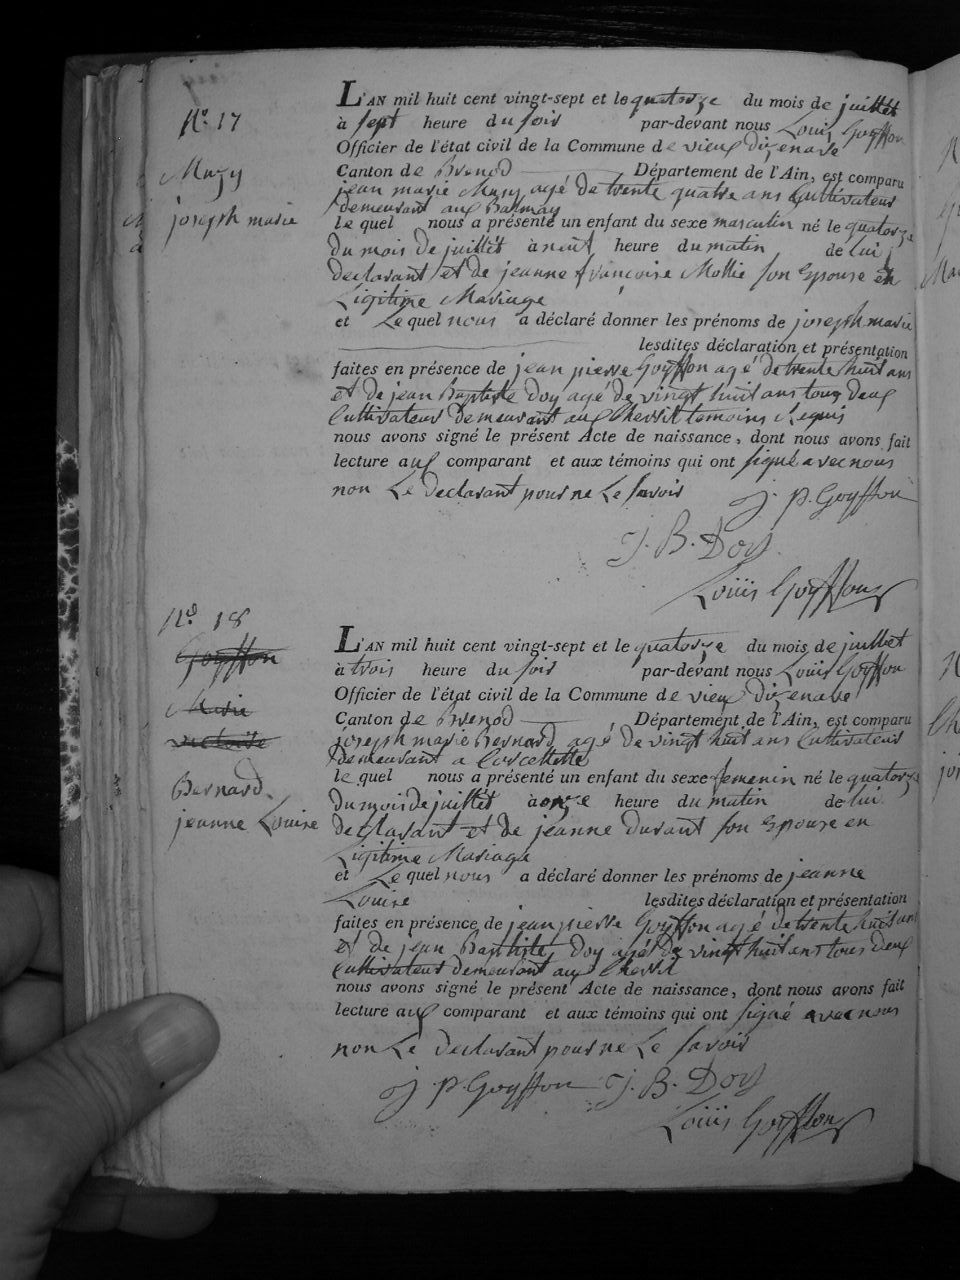 N.º 17
Muzy
joseph marie
L'AN mil huit cent vingt-sept et le quatorze du mois de juillet
à sept heure du soir par-devant nous Louis Goÿffon
Officier de l'état civil de la Commune de vieux dizenave
Canton de Brenod Département de l'Ain, est comparu
jean marie Muzy agé de trente quatre ans Cultivateur
demeurant aux Balmay
le quel nous a présenté un enfant du sexe masculin né le quatorze
du mois de juillet à neuf heure du matin de lui
declarant et de jeanne françoise Mollie son Epouse en
Ligitime Mariage
et Le quel nous a déclaré donner les prénoms de joseph marie
lesdites déclaration et présentation
faites en présence de jean pierre Goÿffon agé de trente huit ans
et de jean Baptiste Doy agé de vingt huit ans tous deux
Cultivateur demeurant aux Chevril temoins
nous avons signé le présent Acte de naissance, dont nous avons fait
lecture aux comparant et aux témoins qui ont signé avec nous
non Le declarant pour ne Le savoir
J. P. Goyffon
J. B. Doy
Louis Goyffon
N.º 18
Goyffon
Marie
victoire
Bernard
jeanne Louise
L'AN mil huit cent vingt-sept et le quatorze du mois de juillet
à trois heure du soir par-devant nous Louis Goÿffon
Officier de l'état civil de la Commune de vieux dizenave
Canton de Brenod Département de l'Ain, est comparu
joseph marie Bernard agé de vingt huit ans Cultivateur
demeurant a Corcellette
le quel nous a présenté un enfant du sexe femenin né le quatorze
du mois de juillet à onze heure du matin de lui
declarant et de jeanne durant son Epouse en
Ligitime Mariage
et Le quel nous a déclaré donner les prénoms de jeanne
Louise lesdites déclaration et présentation
faites en présence de jean pierre Goÿffon agé de trente huit ans
et de jean Baptiste Doy agé de vingt huit ans tous deux
Cultivateur demeurant aux Chevril
nous avons signé le présent Acte de naissance, dont nous avons fait
lecture aux comparant et aux témoins qui ont signé avec nous
non Le declarant pour ne Le savoir
J. P. Goyffon J. B. Doy
Louis Goyffon